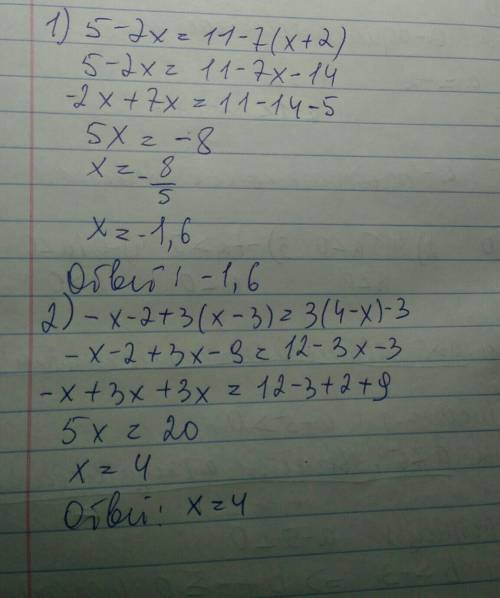 1) 5-2x = 11-7(x+2)
5-2x = 11-7x-14
-2x+7x = 11-14-5
5x = -8
x = -8/5
x = -1,6
Ответ: -1,6
2) -x-2+3(x-3) = 3(4-x)-3
-x-2+3x-9 = 12-3x-3
-x+3x+3x = 12-3+2+9
5x = 20
x = 4
Ответ: x = 4